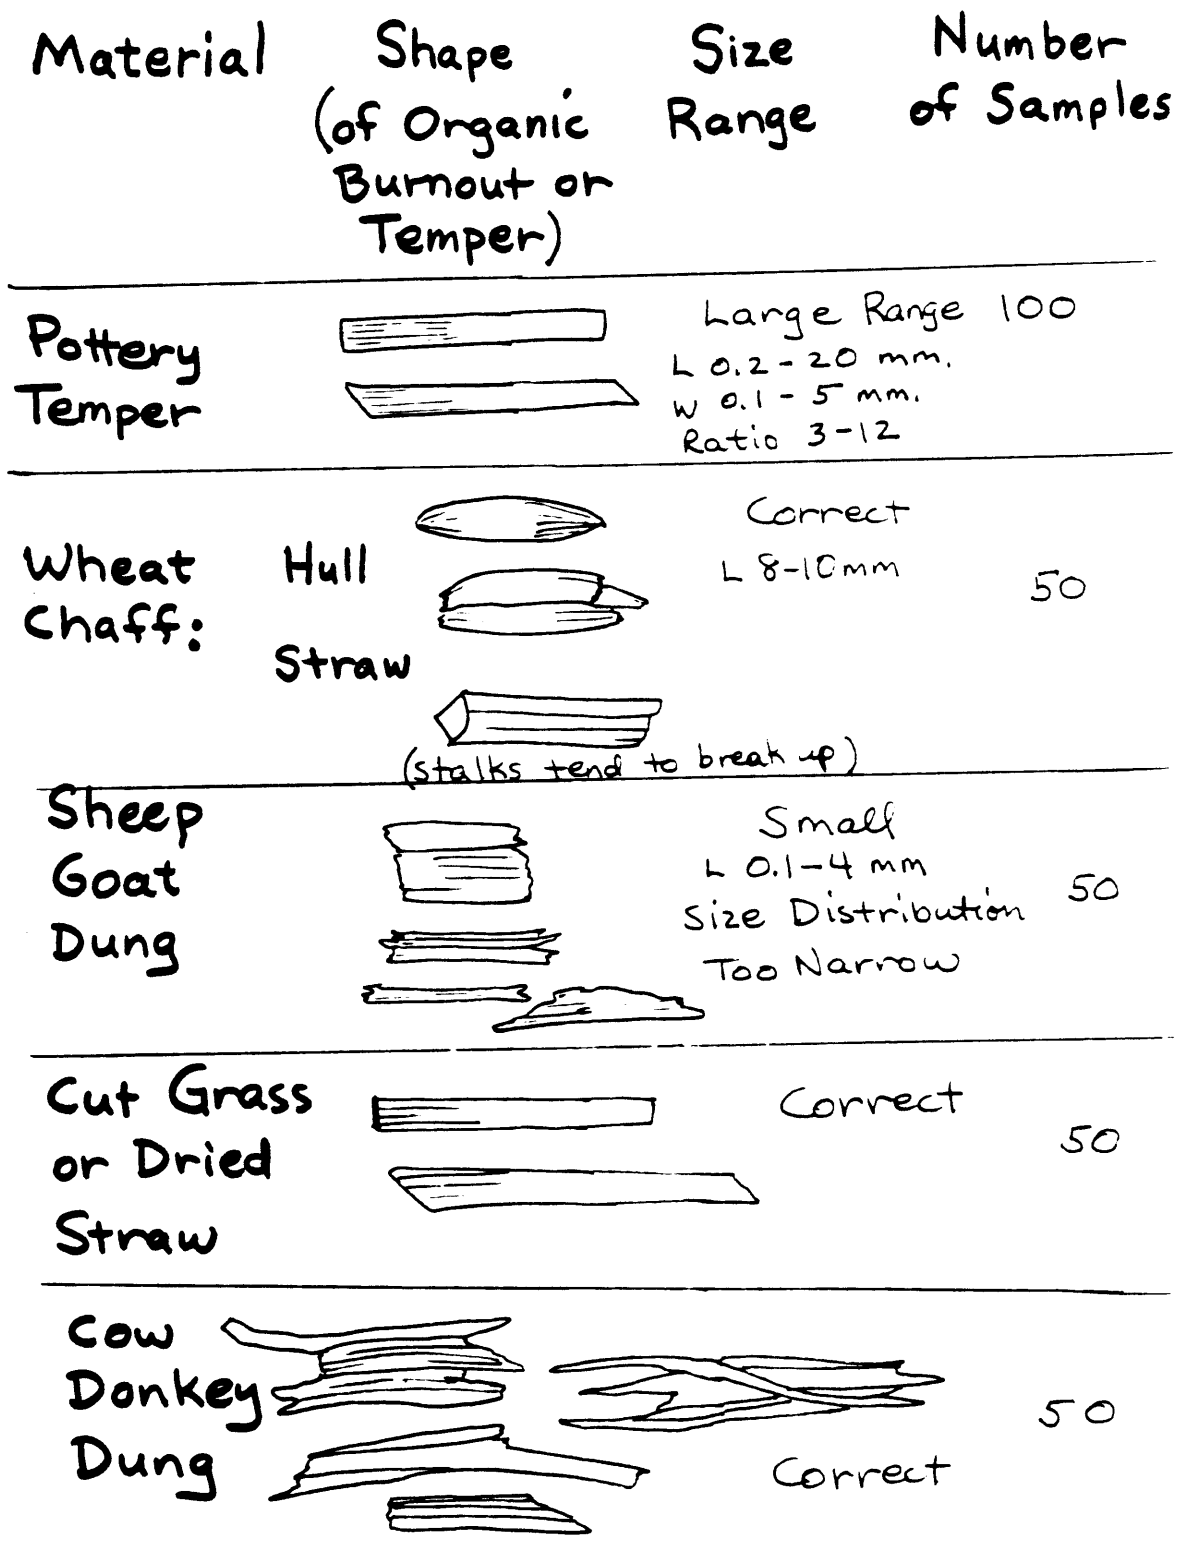 Material
Shape
(of Organic
Burnout or
Temper)
Size
Range
Number
of Samples
Pottery
Temper
Large Range
L 0.2-20 mm.
W 0.1-5 mm.
Ratio 3-12
100
Wheat
Chaff:
Hull
Straw
(stalks tend to break up)
Correct
L 8-10mm
50
Sheep
Goat
Dung
Small
L 0.1-4 mm
Size Distribution
Too Narrow
50
Cut Grass
or Dried
Straw
Correct
50
Cow
Donkey
Dung
Correct
50